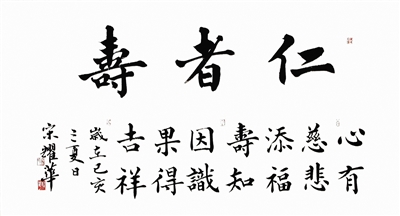 仁者壽
心有
慈悲
添福
壽知
因識
果得
吉祥
歲在己亥
之夏日
宋耀華